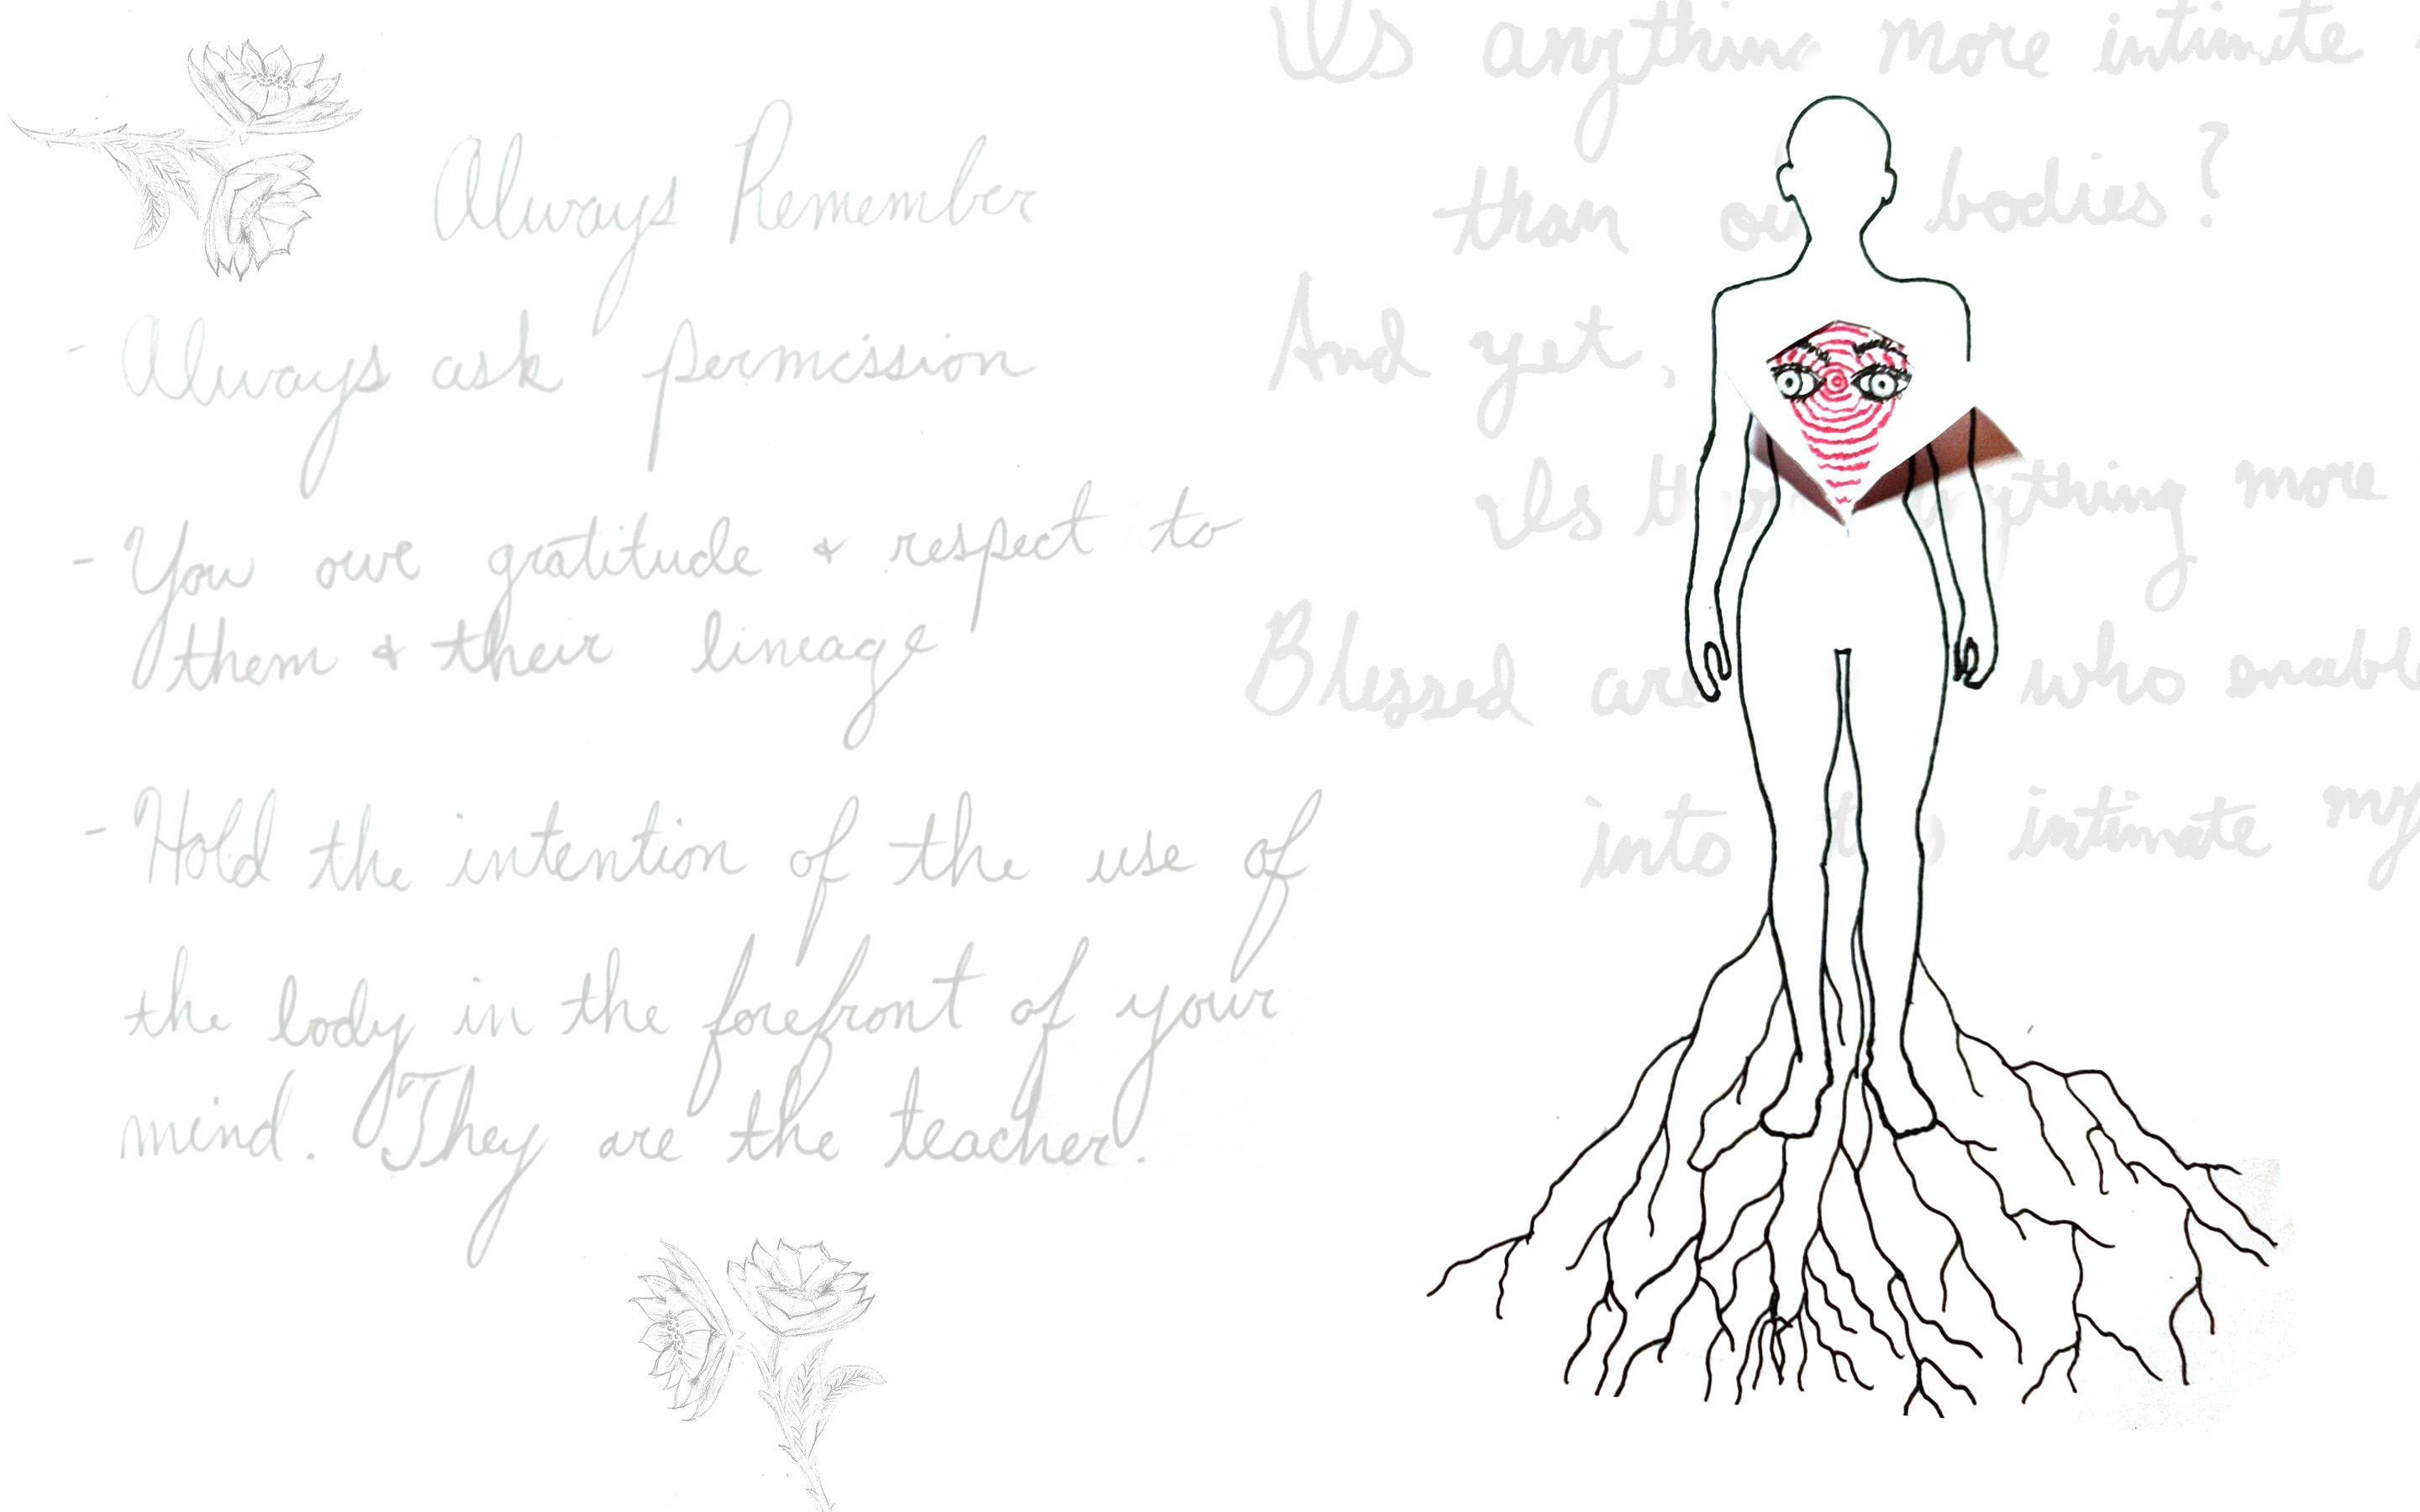 Always Remember
- Always ask permission
- You owe gratitude & respect to
them & their lineage
- Hold the intention of the use of
the body in the forefront of your
mind. They are the teacher.
Is anything more intimate
than bodies?
And yet,
Is more
Blessed are who
into intimate